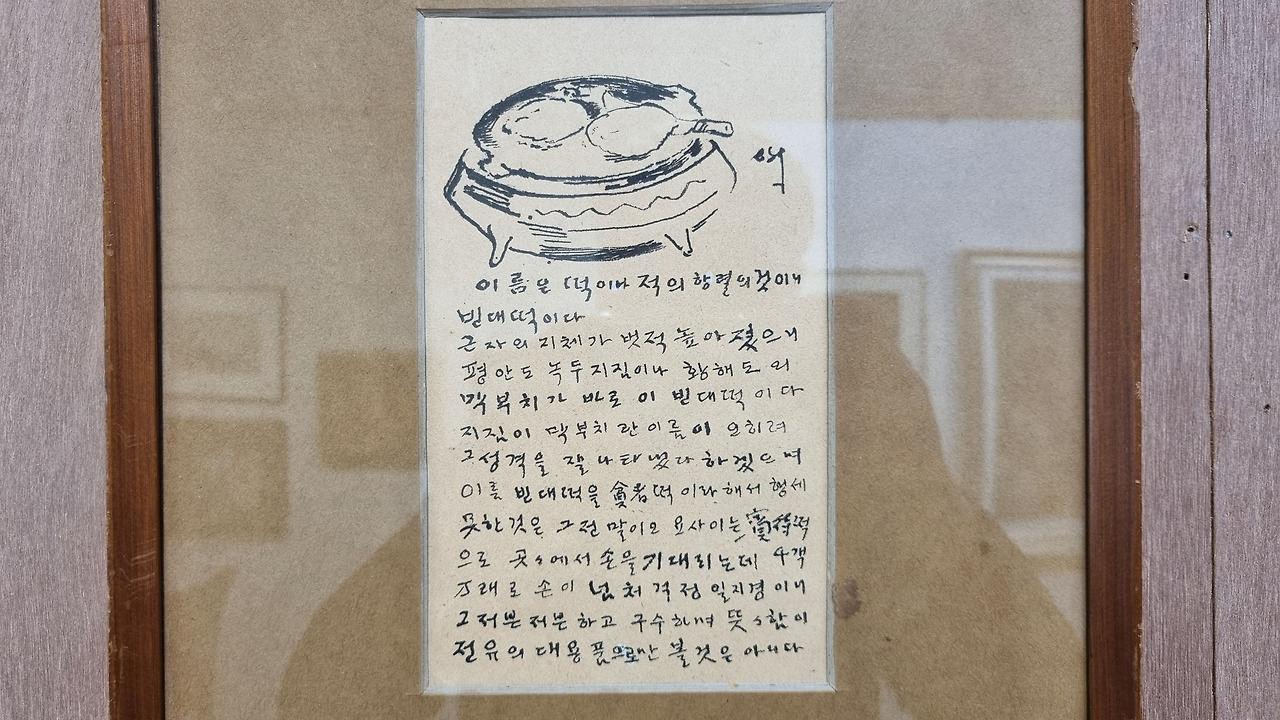 이름은 떡이나 적의 항렬의것이니
빈대떡이다
근자의 지체가 벗적 높아졌으니
평안도 녹두지짐이나 황해도의
막부치가 바로 이 빈대떡이다
지짐이 막부치란이름이 오히려
그성격을 잘나타냈다하겠으며
이름 빈대떡을 貧者떡이라해서 형세
못한것은 그전 말이오 요사이는 賓待떡
으로 곳곳에서 손을기대리는데
손이 넘처 걱정일지경이니
그저분저분하고 구수하며
전유의 대용품으로만 볼것은 아니다